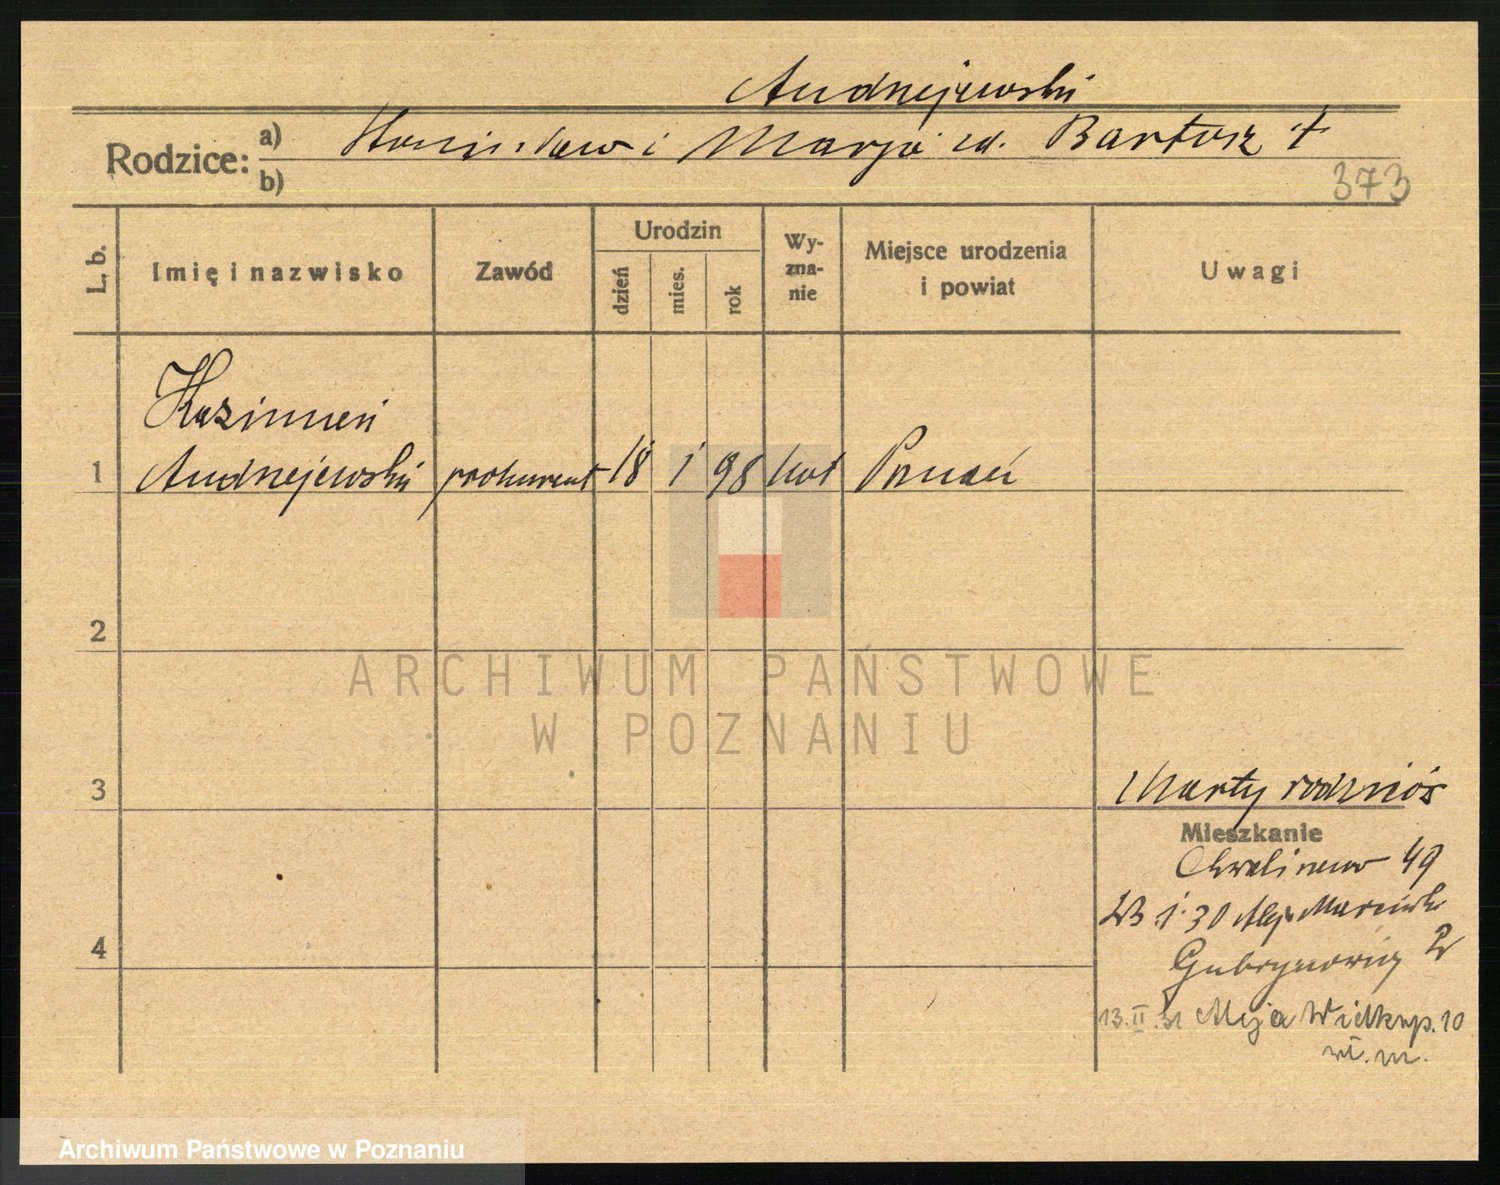 Andrzejewski
Rodzice: a) Stanisław i Marja zd. Bartosz †
b)
373
L. b.
Imię i nazwisko
Zawód
Urodzin
dzień
mies.
rok
Wy-
zna-
nie
Miejsce urodzenia
i powiat
Uwagi
Kazimierz
1 Andrzejewski prokurent 18 1 98 kat Poznań
2
ARCHIWUM PAŃSTWOWE
W POZNANIU
3
Mieszkanie
Chwaliszewo 49
1 30 Alej Marcink
4
2
13.II.31 Aleja Wielkop. 10
wł. m.
Archiwum Państwowe w Poznaniu